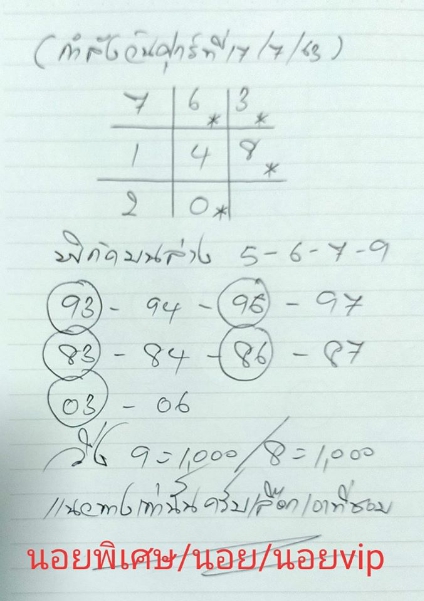 (กำลังวันศุกร์ที่ 17/7/63)
7 6* 3*
1 4 8*
2 0*
พิกัดบนล่าง 5-6-7-9
93 - 94 - 96 - 97
83 - 84 - 86 - 87
03 - 06
วิ่ง 9=1,000/8=1,000
แนวทางเท่านั้นครับ/เลือกเอาที่ชอบ
นอยพิเศษ/นอย/นอยvip